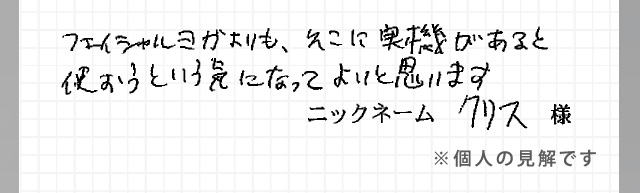 フェイシャルヨガよりも、そこに実機があると
使おうという気になってよいと思います
ニックネーム クリス 様
※個人の見解です